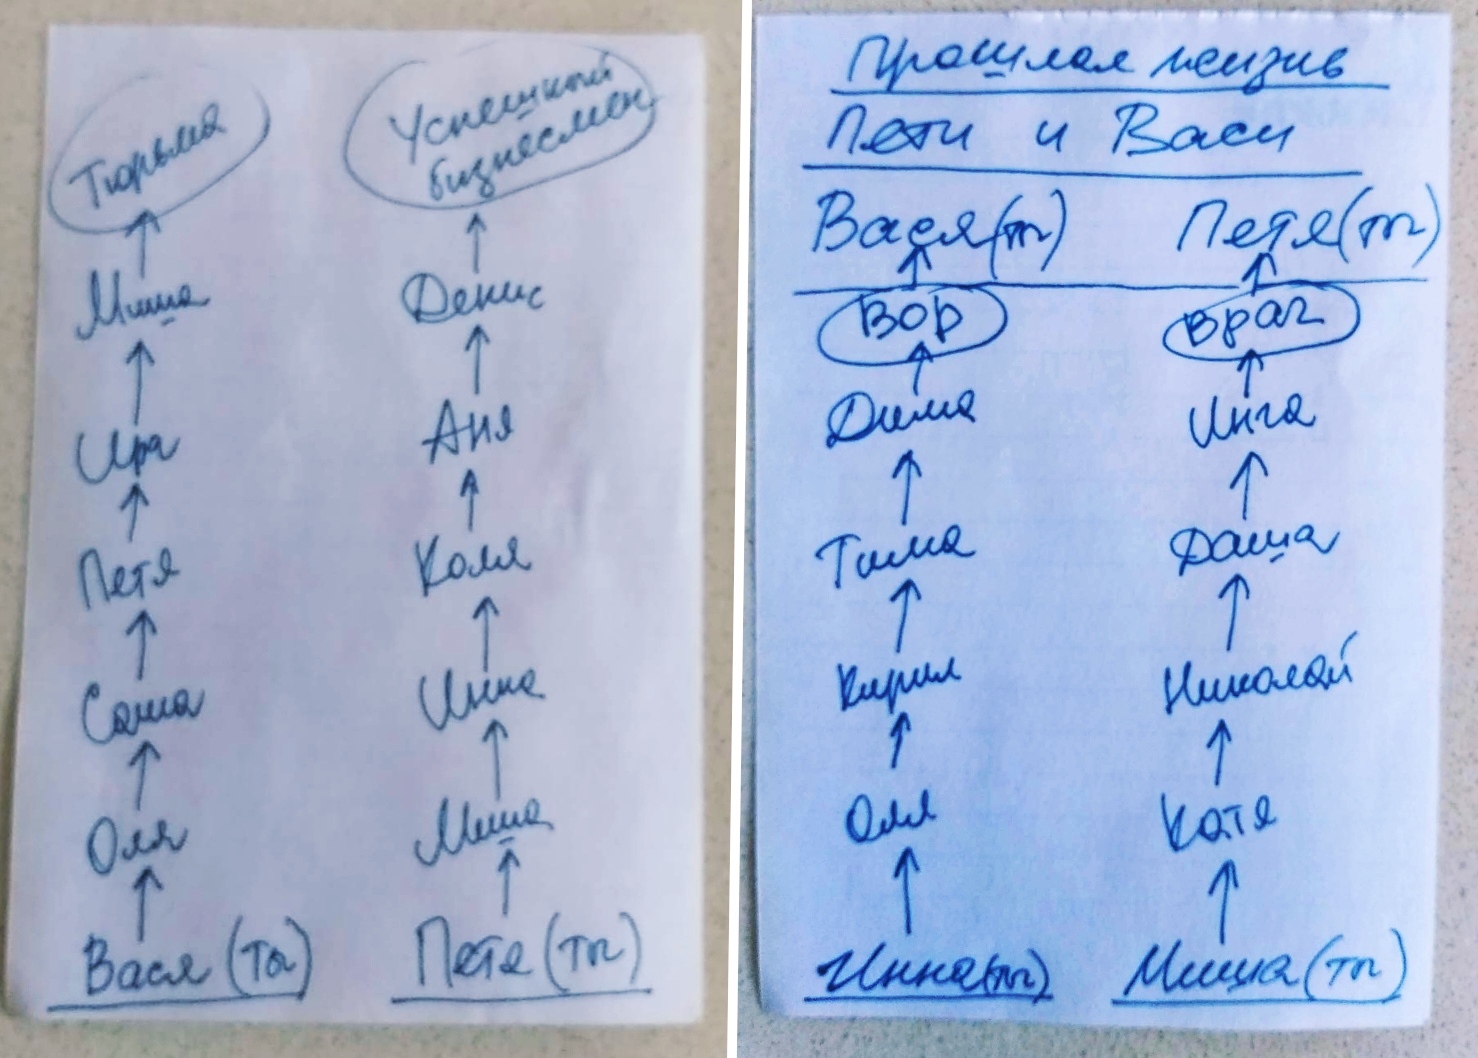 Тюрьма
Миша
Ира
Петя
Саша
Оля
Вася (ты)
Успешный
бизнесмен
Денис
Аня
Коля
Инна
Миша
Петя (ты)
Прошлая жизнь
Пети и Васи
Вася (ты)
Вор
Дима
Тима
Кирил
Оля
Инна (ты)
Петя (ты)
Врач
Инга
Даша
Николай
Катя
Миша (ты)